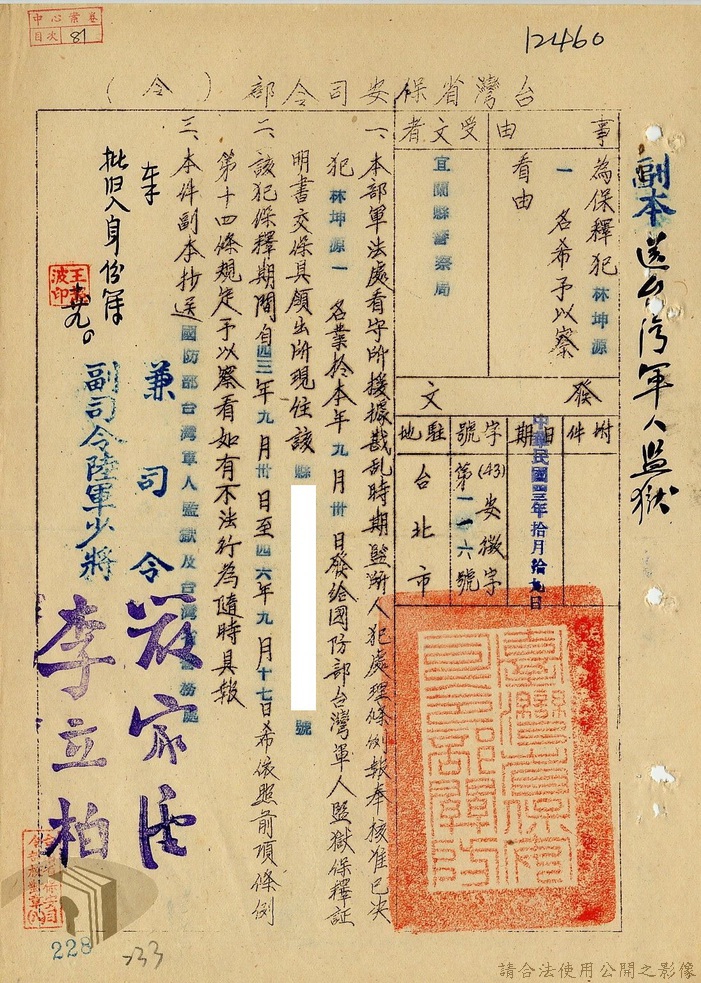 中心案卷
目次 81
12460
台灣省保安司令部（令）
副本 送台湾軍人監獄
事由
為保釋犯林坤源
一名希予以察
看由
受文者
宜蘭縣警察局
發文
附件
日期
中華民國四三年拾月拾九日
字號
(43)安徽字
第一一六號
駐地
台北市
一、本部軍法處看守所援據戡乱時期監所人犯處理條例報奉核准已决
犯林坤源一名業於本年九月卅日發給國防部台灣軍人監獄保釋証
明書交保具領出所現住該縣
號
二、該犯保釋期間自四三年九月卅日至四六年九月十七日希依照前項條例
第十四條規定予以察看如有不法行為隨時具報
三、本件副本抄送國防部台灣軍人監獄及台灣省
務處
批旧入身份簿
兼司令
副司令陸軍少將
李立柏
臺灣省保安司令部關防
228
-33
請合法使用公開之影像